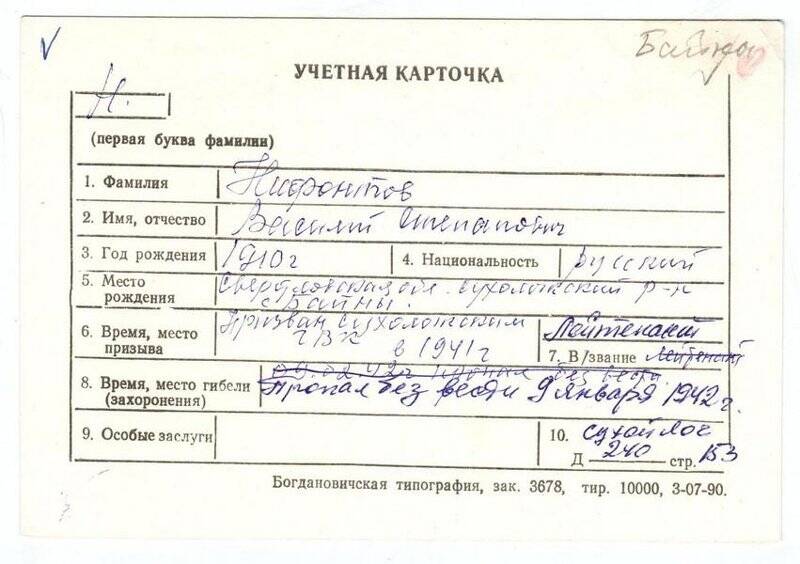 Байны
УЧЕТНАЯ КАРТОЧКА
Н.
(первая буква фамилии)
1. Фамилия Нифонтов
2. Имя, отчество Василий Степанович
3. Год рождения 1910 г 4. Национальность русский
5. Место рождения Свердловская обл. Сухоложский р-н
с. Байны.
6. Время, место призыва Призван Сухоложским
ГВК в 1941 г
Лейтенант
7. В/звание Лейтенант
8. Время, место гибели (захоронения) 09.02.42г пропал без вести
Пропал без вести 9 января 1942 г.
9. Особые заслуги
10. Сухой Лог
Д 240 стр. 153
Богдановичская типография, зак. 3678, тир. 10000, 3-07-90.